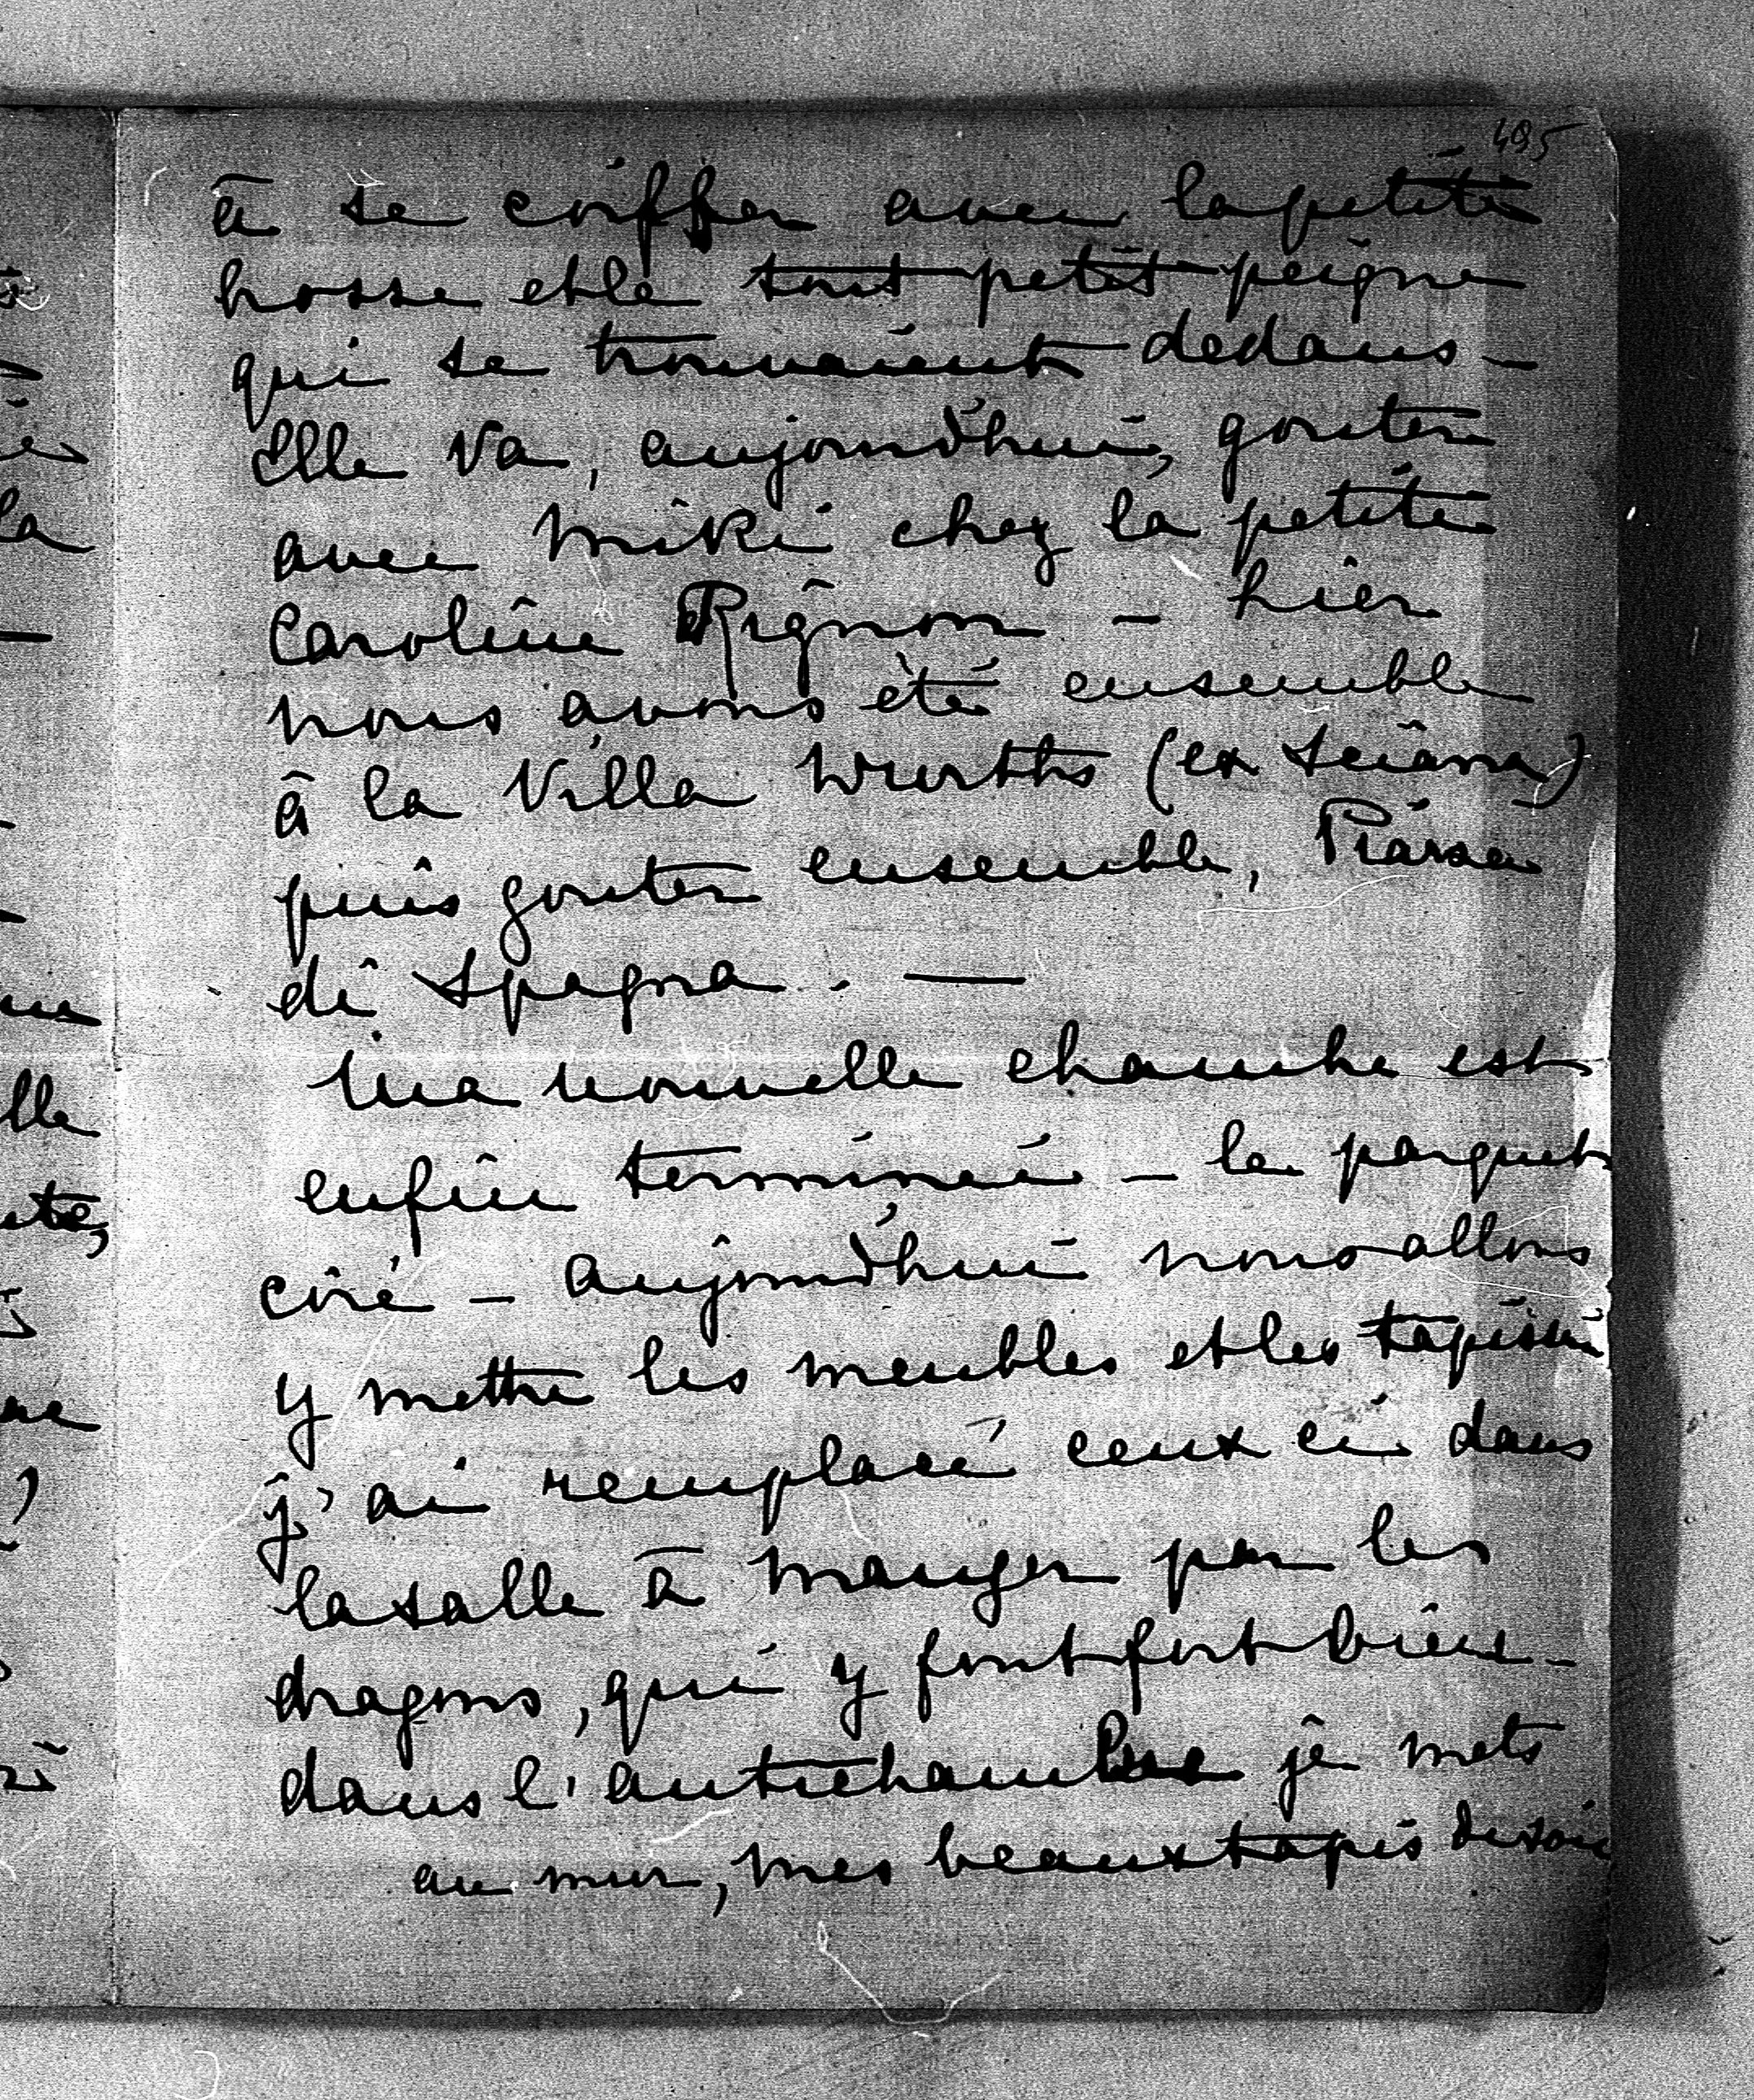 495
à se coiffer avec la petite
brosse et le tout petit peigne
qui se trouvaient dedans -
Elle va, aujourd'hui, gouter
avec Miki chez la petite
Caroline Rignon - hier
nous avons été ensemble
à la Villa Wurths (ex Sciarra)
puis gouter ensemble, Piazza
di Spagna. —
Ma nouvelle chambre est
enfin terminée - le parquet
ciré - aujourd'hui nous allons
y mettre les meubles et les tapis
j'ai remplacé ceux ci dans
la salle à manger par les
dragons, qui y font fort bien -
dans l'antichambre je mets
au mur, mes beaux tapis de soie